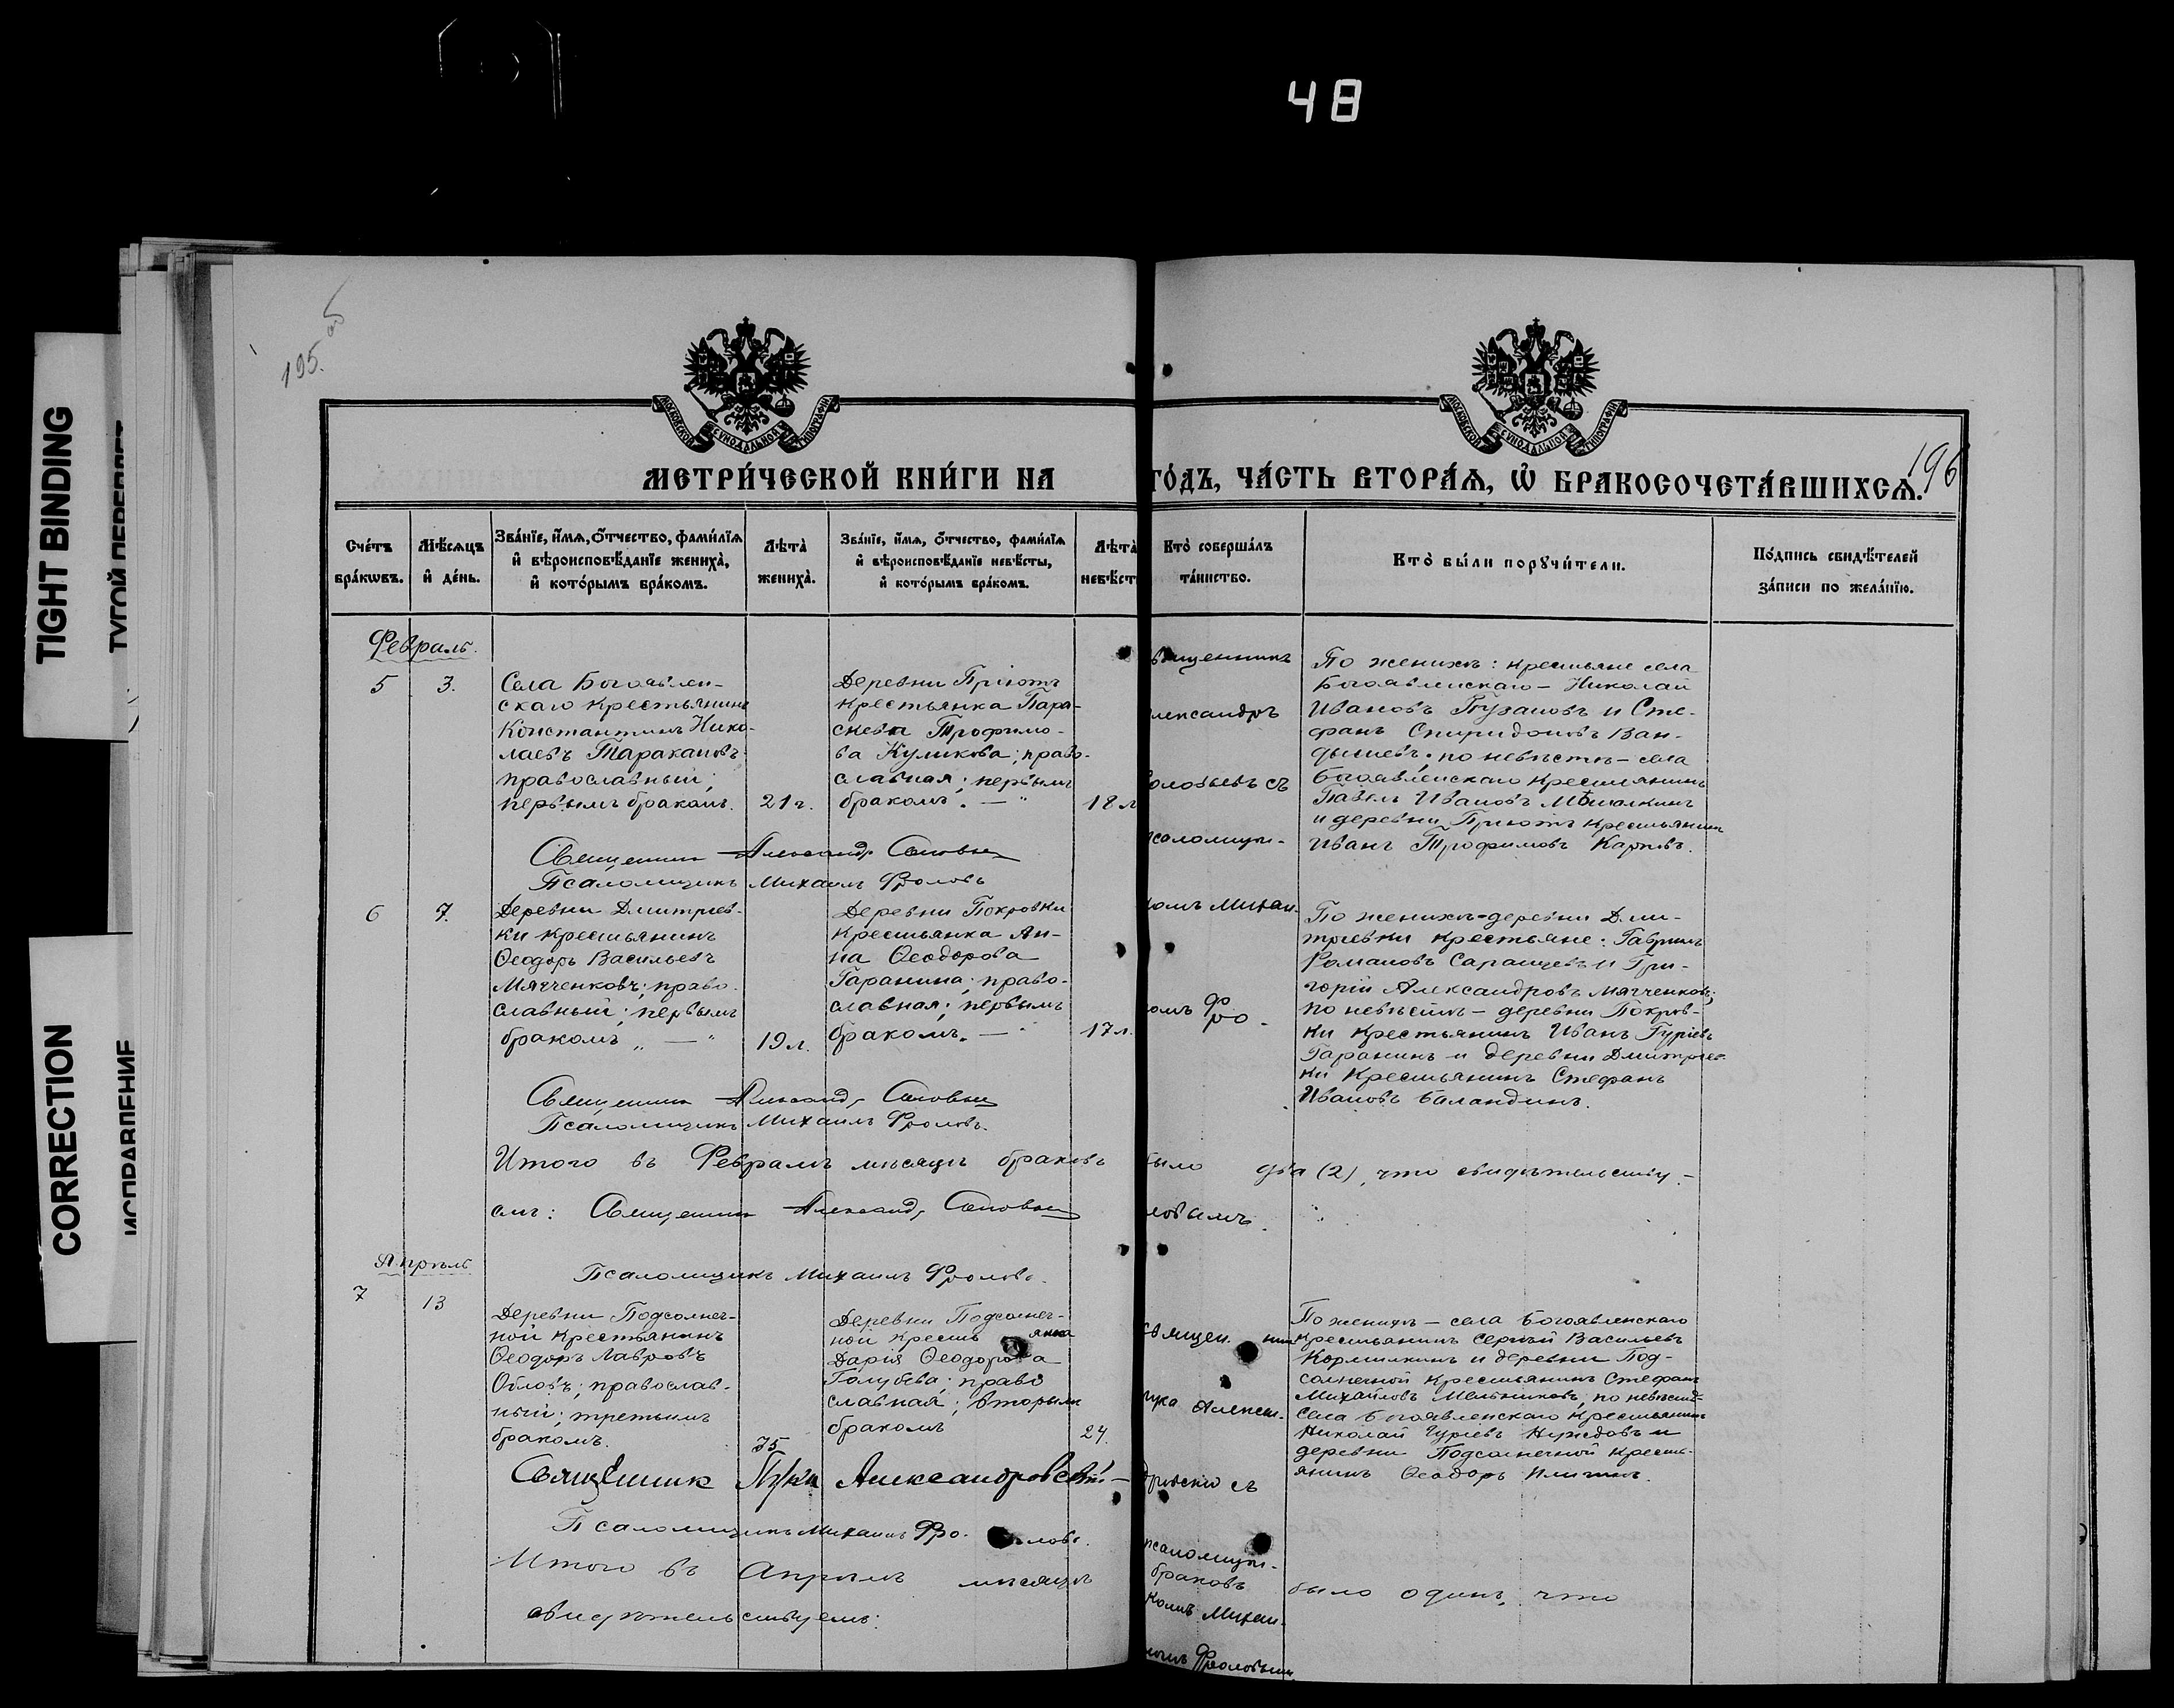 48
TIGHT BINDING
CORRECTION
ИСПРАВЛЕНИЕ
195 об
196
МОСКОВСКОЙ СѴНОДАЛЬНОЙ ТИПОГРАФІИ
МОСКОВСКОЙ СѴНОДАЛЬНОЙ ТИПОГРАФІИ
МЕТРИ́ЧЕСКОЙ КНИ́ГИ НА
ГО́ДЪ, ЧА́СТЬ ВТОРА́Ѧ, Ѽ БРАКОСОЧЕТА́ВШИХСѦ.
Сче́тъ
бра́кѡвъ.
Мѣ́сяцъ
и҆ де́нь.
Зва́нїе, и҆́мѧ, ѻ҆́тчество, фами́лїѧ
и҆ вѣроисповѣ́данїе жениха̀,
и҆ кото́рымъ бра́комъ.
Лѣта̀
жениха̀.
Зва́нїе, и҆́мѧ, ѻ҆́тчество, фами́лїѧ
и҆ вѣроисповѣ́данїе невѣ́сты,
и҆ кото́рымъ бра́комъ.
Лѣта̀
невѣ́ст
Кто̀ соверша́лъ
та́инство.
Кто̀ бы́ли порꙋчи́тели.
По́дпись свидѣ́телей
за́писи по жела́нїю.
Февраль.
5
3.
Села Богоявлен-
скаго крестьянинъ
Константинъ Нико-
лаевъ Таракановъ
православный;
первымъ бракомъ.
21 г.
Деревни Пріютъ
крестьянка Пара-
скева Трофимо-
ва Куликова; право-
славная; первымъ
бракомъ. — "
18 л
вященникъ
лександръ
оловьевъ съ
саломщи-
комъ Михаи-
ломъ Фро-
ловымъ.
По женихѣ: крестьяне села
Богоявленскаго – Николай
Ивановъ Пузановъ и Сте-
фанъ Спиридоновъ Ван-
дышевъ; по невѣстѣ – села
Богоявленскаго крестьянинъ
Павелъ Ивановъ Мѣшалкинъ
и деревни Пріютъ крестьянинъ
Иванъ Трофимовъ Карповъ.
Священникъ Александръ Соловьевъ
Псаломщикъ Михаилъ Фроловъ
6
7.
Деревни Дмитріев-
ки крестьянинъ
Ѳеодоръ Васильевъ
Мягченковъ; право-
славный; первымъ
бракомъ „ — "
19 л.
Деревни Покровки
крестьянка Ан-
на Ѳеодорова
Гаранина; право-
славная; первымъ
бракомъ. — "
17 л.
По женихѣ – деревни Дми-
тріевки крестьяне: Гавріилъ
Романовъ Саранцевъ и Гри-
горій Александровъ Мягченковъ;
по невѣстѣ – деревни Покров-
ки крестьянинъ Иванъ Гуріевъ
Гаранинъ и деревни Дмитріев-
ки крестьянинъ Стефанъ
Ивановъ Баландинъ.
Священникъ Александръ Соловьевъ
Псаломщикъ Михаилъ Фроловъ.
Итого въ Февралѣ мѣсяцѣ браковъ было два (2), что свидѣтельству-
емъ: Священникъ Александръ Соловьевъ
Псаломщикъ Михаилъ Фроловъ.
Апрѣль
7
13
Деревни Подсолнеч-
ной крестьянинъ
Ѳеодоръ Лавровъ
Обловъ; православ-
ный; третьимъ
бракомъ.
35
Деревни Подсолнеч-
ной крестьянка
Дарія Ѳеодорова
Голубева; право
славная; вторымъ
бракомъ
24.
Священникъ
Лука Алексан-
дровскій съ
псаломщи-
комъ Михаи-
ломъ Фроловымъ
По женихѣ – села Богоявленскаго
крестьянинъ Сергѣй Васильевъ
Кормилкинъ и деревни Под-
солнечной крестьянинъ Стефанъ
Михайловъ Мельниковъ; по невѣстѣ –
села Богоявленскаго крестьянинъ
Николай Гуріевъ и
деревни Подсолнечной кресть-
янинъ Ѳеодоръ
Священникъ Лука Александровскій –
Псаломщикъ Михаилъ Фро- ловъ.
Итого въ Апрѣлѣ мѣсяцѣ браковъ было одинъ, что
свидѣтельствуемъ: